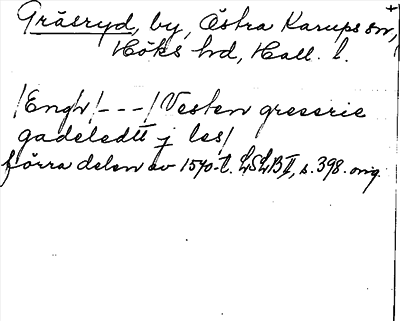 Gråsryd, by, Östra Karups sn,
Höks hd, Hall. l.
/Engh/ - - - / Vesten greserie
gadeledtt j les/
förra delen av 1540-t. LSLB II, s. 398. orig.